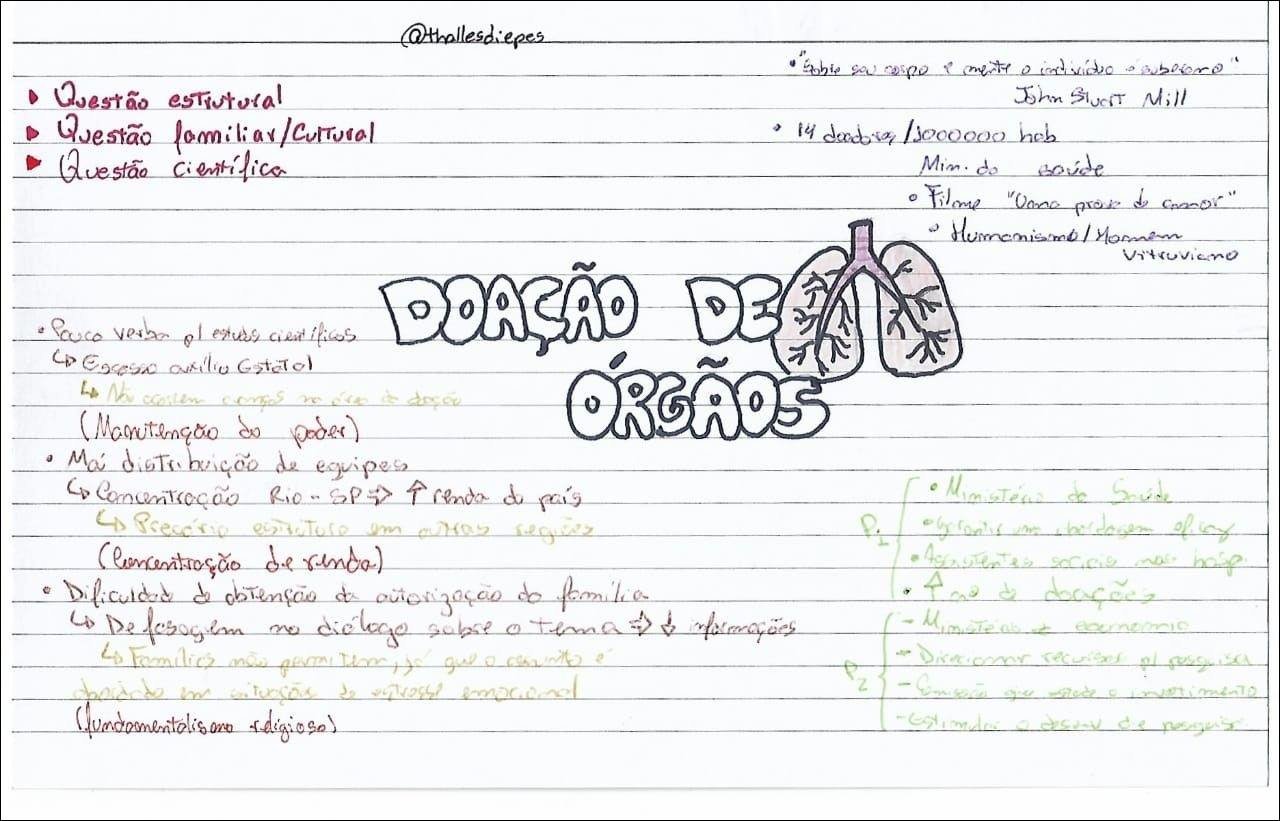 @thallesdiepes
▶ Questão estrutural
▶ Questão familiar/Cultural
▶ Questão científica
• "Sobre seu corpo e mente o indivíduo é soberano"
John Stuart Mill
• 14 doadores/1000000 hab
Min. da saúde
• Filme "Uma prova de amor"
• Humanismo/Homem
Vitruviano
DOAÇÃO DE
ÓRGÃOS
• Pouca verba p/ estudos científicos
↳ Escasso auxílio Estatal
↳ Não ocorrem avanços na área de doação
(Manutenção do poder)
• Má distribuição de equipes
↳ Concentração Rio - SP => ↑ renda do país
↳ Precária estrutura em outras regiões
(Concentração de renda)
• Dificuldade de obtenção da autorização da família
↳ Defasagem no diálogo sobre o tema => ↓ informações
↳ Famílias não permitem, já que o assunto é
abordado em situações de estresse emocional
(fundamentalismo religioso)
P1
• Ministério da Saúde
• Garantir uma abordagem eficaz
• Assistentes sociais nos hosp.
• ↑ no de doações
P2
- Ministério de economia
- Direcionar recursos p/ pesquisa
- Comissão que estude o investimento
- Estimular o desenv de pesquisas